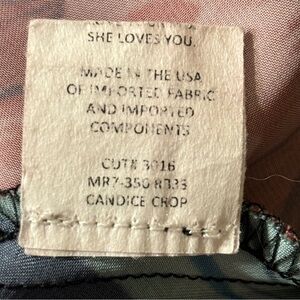 SHE LOVES YOU.
MADE IN THE USA
OF IMPORTED FABRIC
AND IMPORTED
COMPONENTS
CUT# 3016
MR7-350 R333
CANDICE CROP